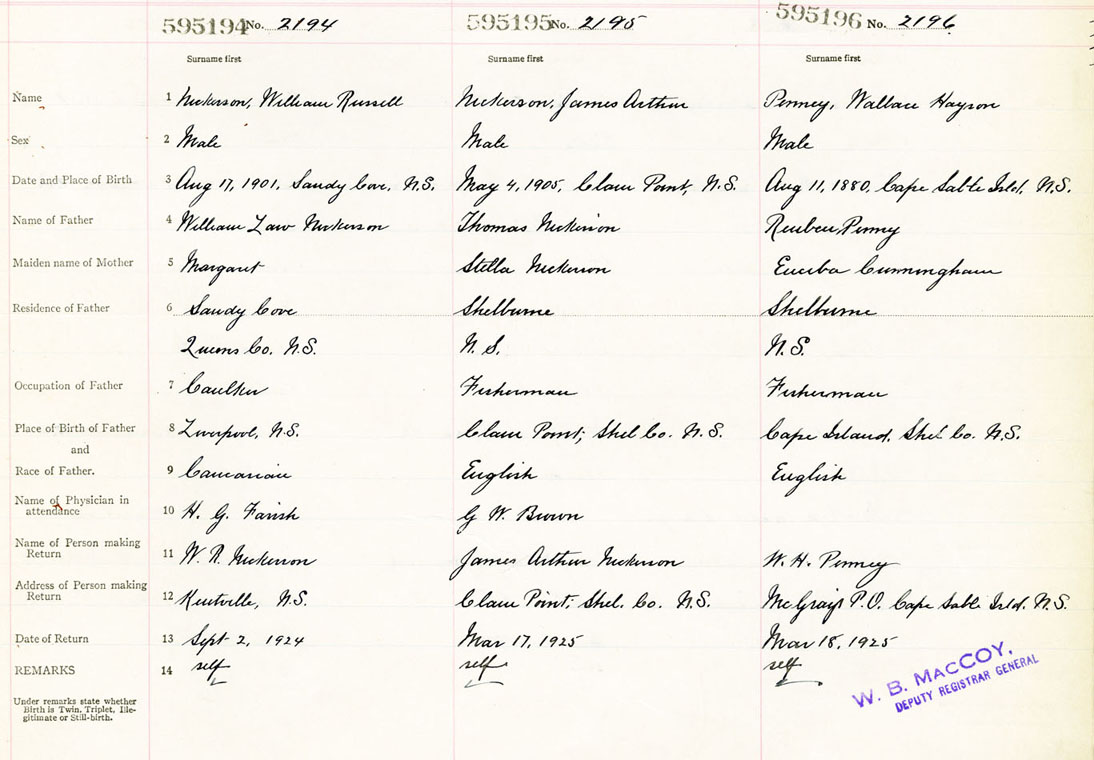 595194 No. 2194 595195 No. 2195 595196 No. 2196
Surname first Surname first Surname first
Name 1 Nickerson, William Russell Nickerson, James Arthur Penney, Wallace Hayson
Sex 2 Male Male Male
Date and Place of Birth 3 Aug 17, 1901, Sandy Cove, N.S. May 4, 1905, Clam Point, N.S. Aug 11, 1880, Cape Sable Isld. N.S.
Name of Father 4 William Law Nickerson Thomas Nickerson Reuben Penney
Maiden name of Mother 5 Margaret Stella Nickerson Cunningham
Residence of Father 6 Sandy Cove Shelburne Shelburne
Queens Co. N.S. N.S. N.S.
Occupation of Father 7 Caulker Fisherman Fisherman
Place of Birth of Father 8 Liverpool, N.S. Clam Point, Shel Co. N.S. Cape Island, Shel Co. N.S.
and
Race of Father. 9 Caucasian English English
Name of Physician in
attendance 10 H. G. Farish G W. Brown
Name of Person making
Return 11 W. R. Nickerson James Arthur Nickerson W. H. Penney
Address of Person making
Return 12 Kentville, N.S. Clam Point, Shel. Co. N.S. McGray P.O. Cape Sable Isld. N.S.
Date of Return 13 Sept 2, 1924 Mar 17, 1925 Mar 18, 1925
REMARKS 14 self self self
W. B. MACCOY,
DEPUTY REGISTRAR GENERAL
Under remarks state whether
Birth is Twin, Triplet, Ille-
gitimate or Still-birth.